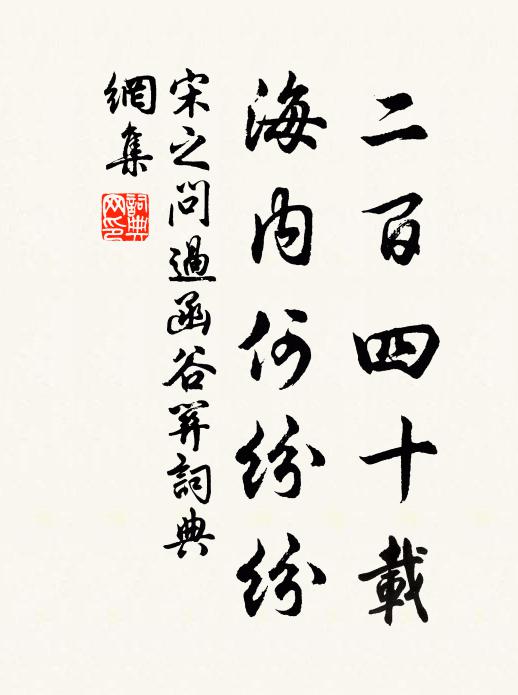 二百四十載
海内何紛紛
宋之問過函谷関詞典
網集
詞典
网印